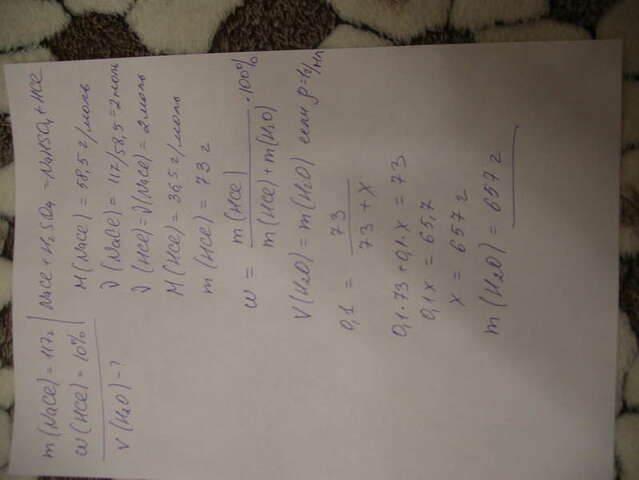 m(NaCl) = 117г
w(HCl) = 10%
V(H₂O) - ?
NaCl + H₂SO₄ = NaHSO₄ + HCl
M(NaCl) = 58,5 г/моль
ν(NaCl) = 117/58,5 = 2 моль
ν(HCl) = ν(NaCl) = 2 моль
M(HCl) = 36,5 г/моль
m(HCl) = 73 г
w = m(HCl) / m(HCl) + m(H₂O) · 100%
V(H₂O) = m(H₂O) если ρ = 1г/мл
0,1 = 73 / 73 + x
0,1·73 + 0,1·x = 73
0,1x = 65,7
x = 657 г
m(H₂O) = 657 г